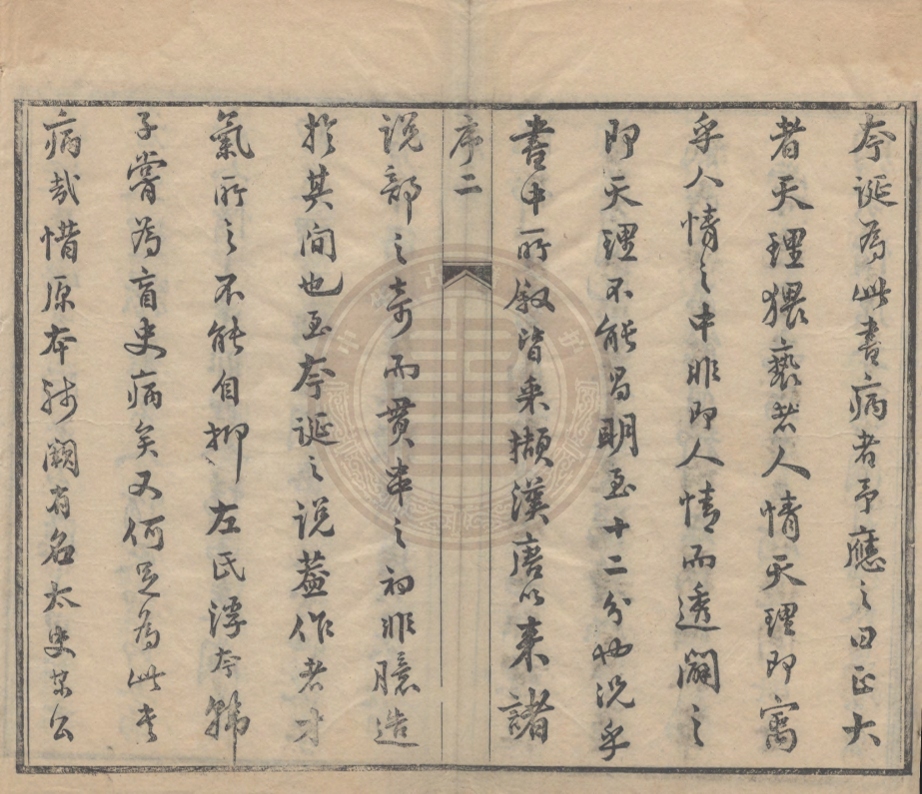 夸誕為此書病者予應之曰正大
者天理猥褻者人情天理即寓
乎人情之中非即人情而透闢之
即天理不能昌明至十二分也況乎
書中所敘皆采擷漢唐以來諸
序二
說部之奇而貫串之初非臆造
於其間也至夸誕之說蓋作者才
氣所之不能自抑左氏浮夸韓
子嘗為盲史病矣又何足為此書
病哉惜原本殘闕有名太史某公